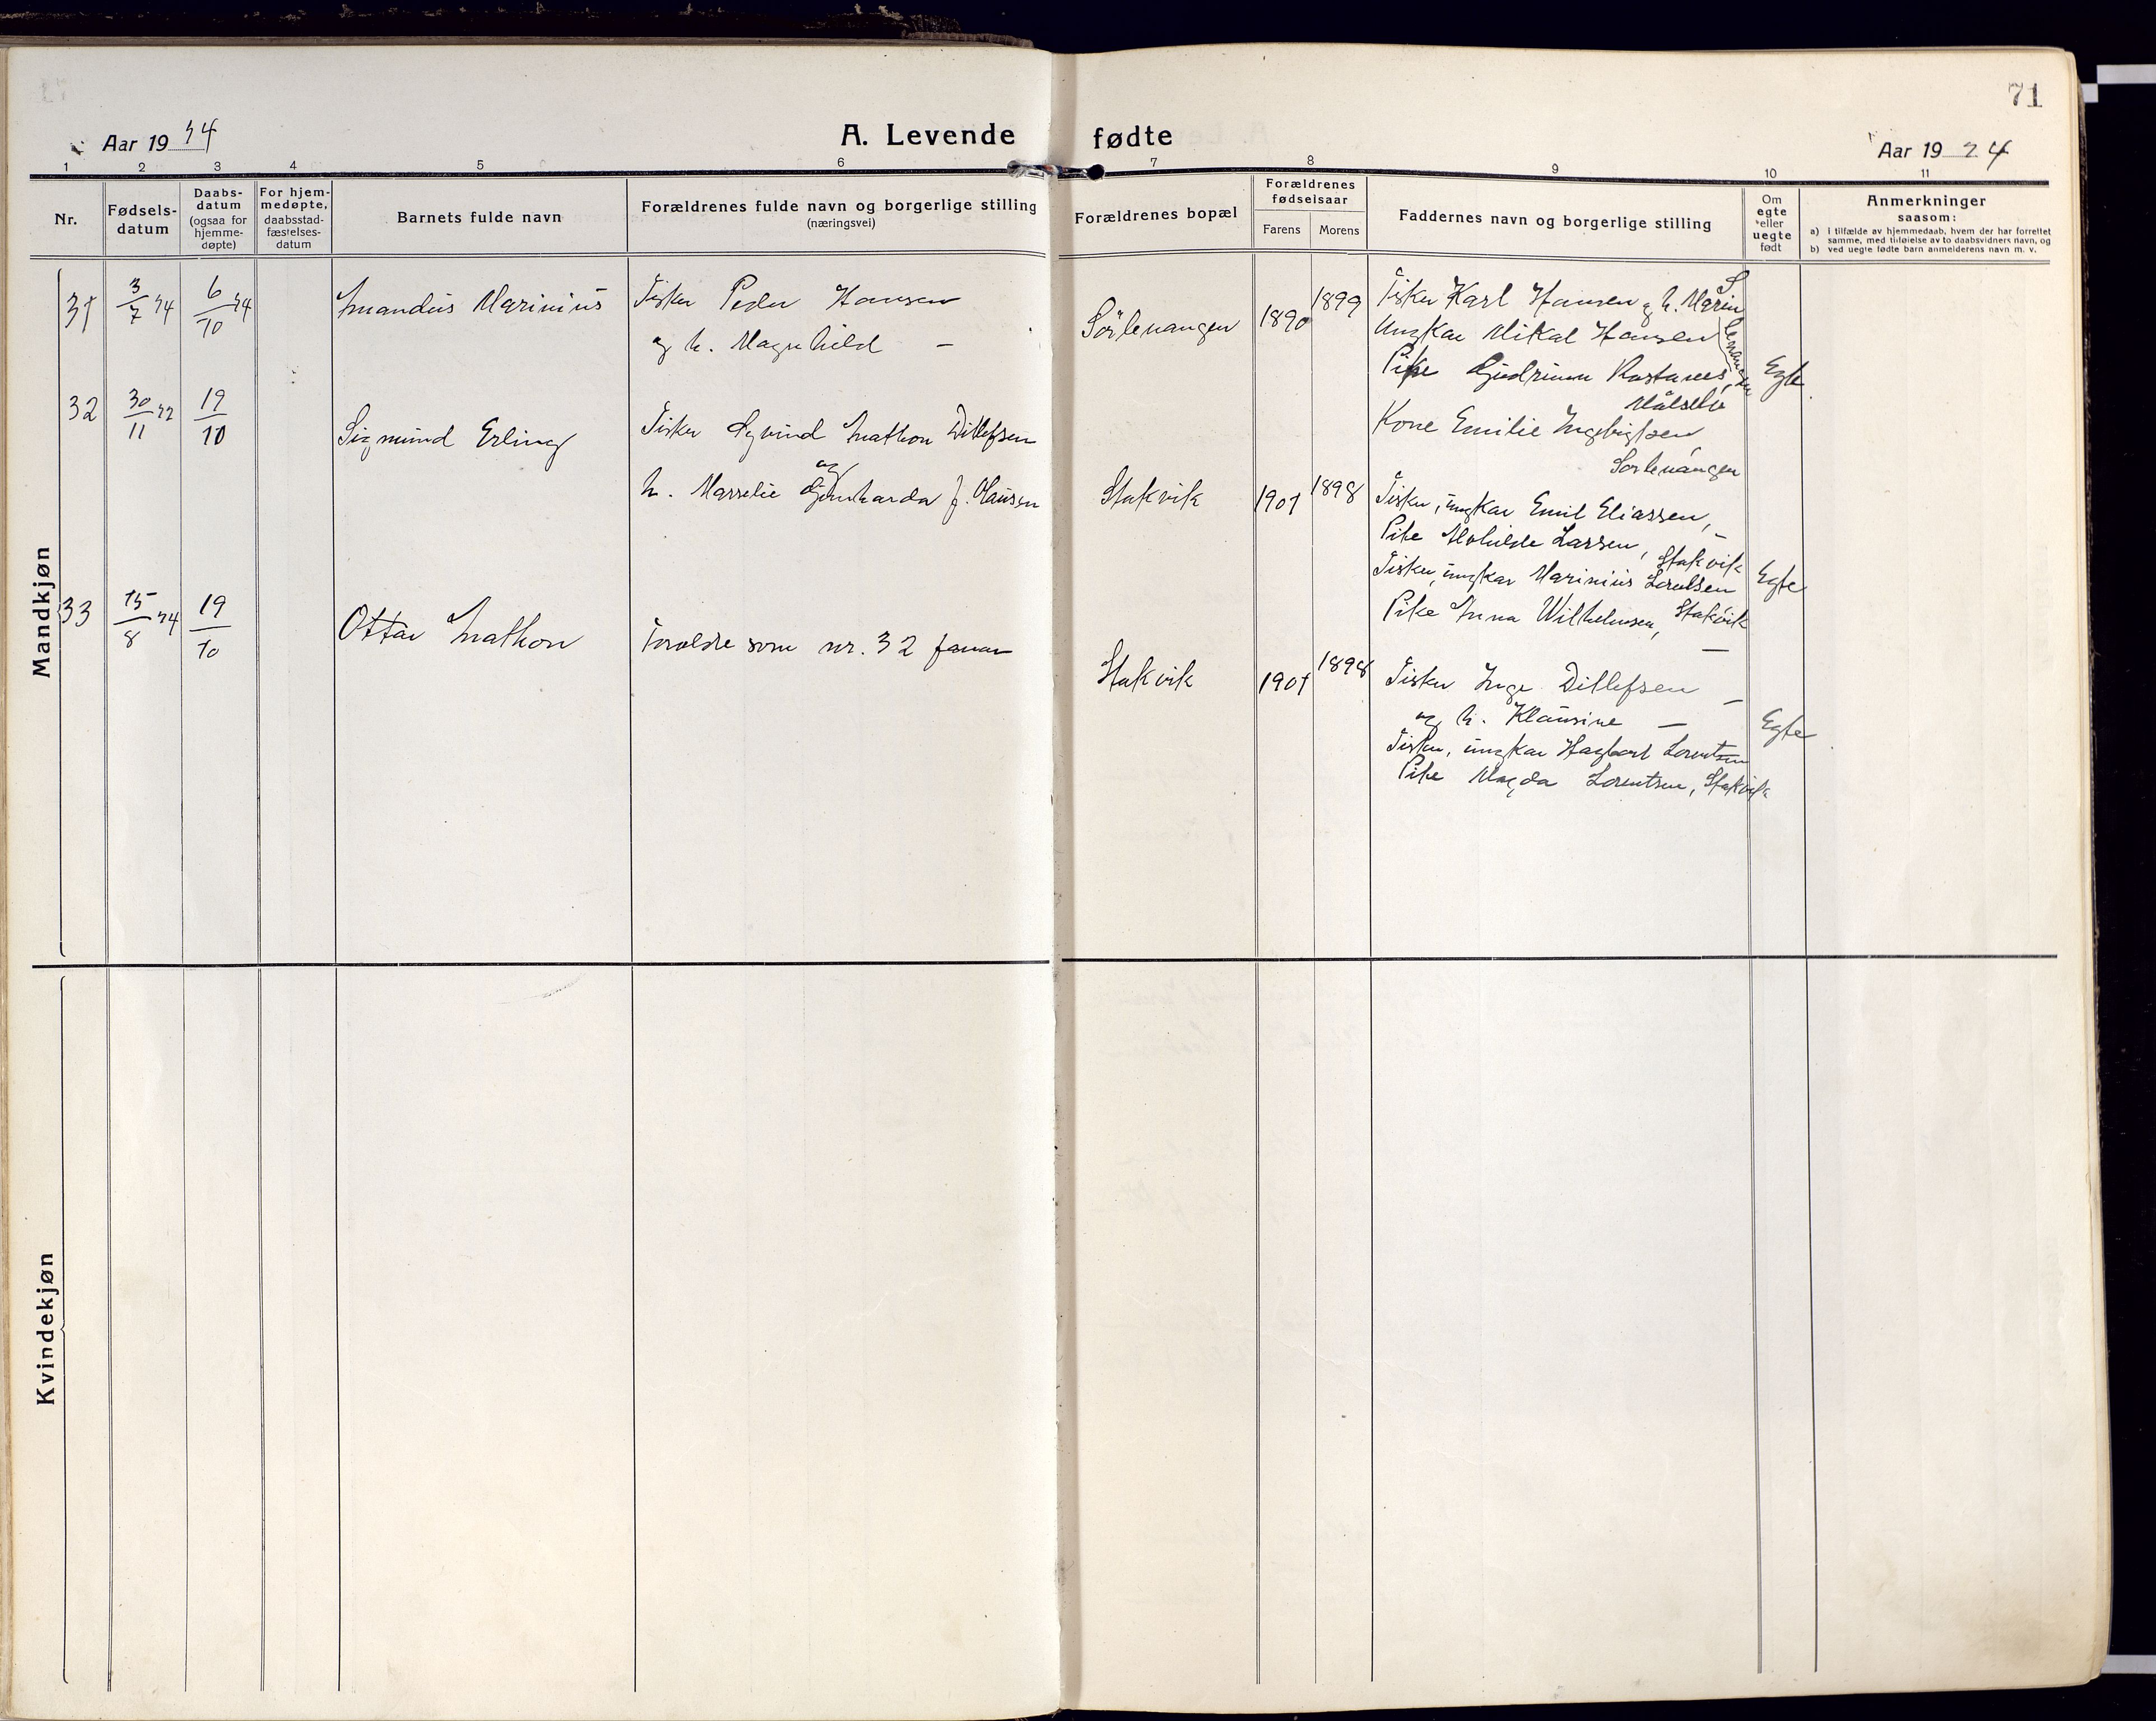 71
Aar 1924
A. Levende fødte
Aar 1924
1 2 3 4 5 6 7 8 9 10 11
Nr.
Fødsels-
datum
Daabs-
datum
(ogsaa for
hjemme-
døpte)
For hjem-
medøpte,
daabsstad-
fæstelses-
datum
Barnets fulde navn
Forældrenes fulde navn og borgerlige stilling
(næringsvei)
Forældrenes bopæl
Forældrenes
fødselsaar
Farens Morens
Faddernes navn og borgerlige stilling
Om
egte
eller
uegte
født
Anmerkninger
saasom:
a) i tilfælde av hjemmedaab, hvem der har forrettet
samme, med tilføielse av to daabsvidners navn, og
b) ved uegte fødte barn anmelderens navn m. v.
Mandkjøn
31 3/7 24 6/10 24
Marinius
Fisker Peder Hansen
og h. Magnhild —
Sørlenangen
1890 1899
Fisker Karl Hansen og h. Marin
Ungkar Mikal Hansen
S. Lenangen
Pike Gudrunn
Målselv
Kone Emilie Ingebrigtsen
Sørlenangen
Egte
32 30/11 22 19/10
Sigmund Erling
Fisker Øyvind Mathon Ditlefsen
og
h. f. Hansen
Stakvik
1901 1898
Fisker, ungkar Emil Eliassen, —
Pike Larsen, Stakvik
Fisker, ungkar Marinius
Pike Anna Wilhelmsen, Stakvik
Egte
33 15/8 24 19/10
Ottar Mathon
Foreldre som nr. 32
Stakvik
1901 1898
Fisker Inge Ditlefsen —
og h. Klausine —
Fisker, ungkar Hagbart Lorentsen
Pike Magda Lorentsen, Stakvik
Egte
Kvindekjøn